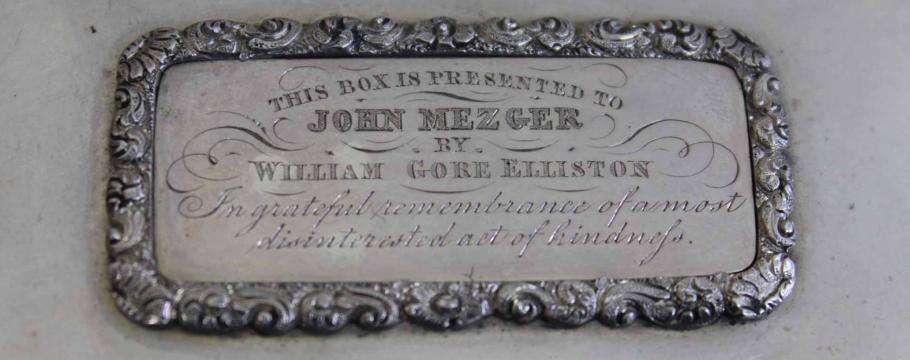 THIS BOX IS PRESENTED TO
JOHN MEZGER
BY
WILLIAM GORE ELLISTON
In grateful remembrance of a most
disinterested act of kindneſs.